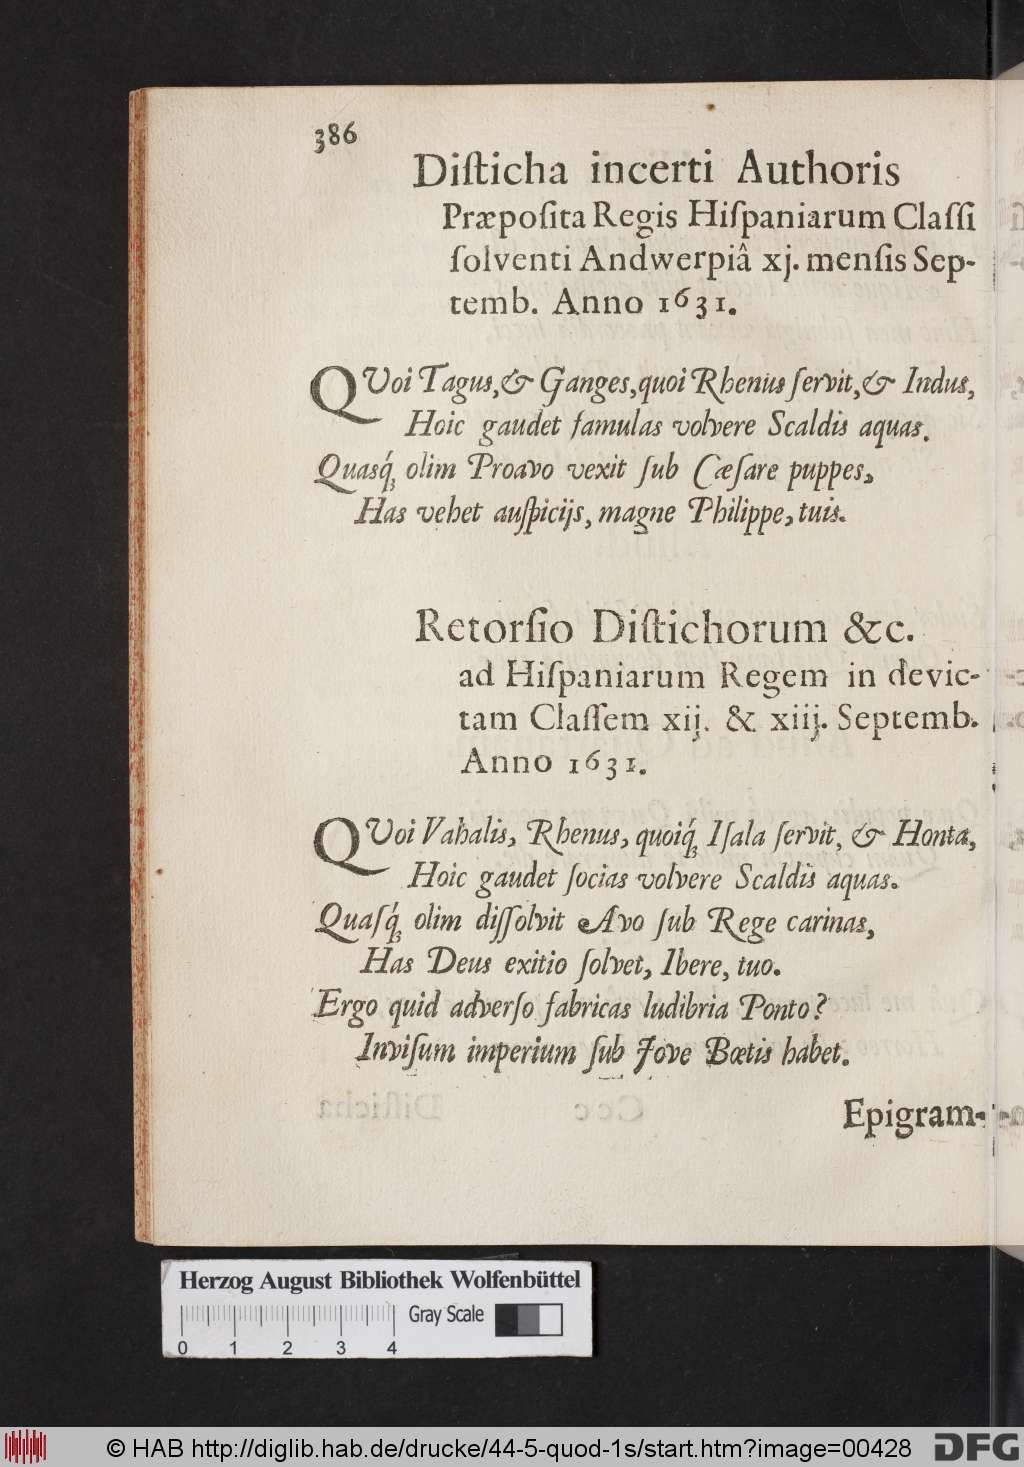 386
Diſticha incerti Authoris
Præpoſita Regis Hiſpaniarum Claſſi
ſolventi Andwerpiâ xj. menſis Sep-
temb. Anno 1631.
QVoi Tagus, & Ganges, quoi Rhenus ſervit, & Indus,
Hoic gaudet famulas volvere Scaldis aquas.
Quasq́ꝫ olim Proavo vexit ſub Cæſare puppes,
Has vehet auſpicijs, magne Philippe, tuis.
Retorſio Diſtichorum &c.
ad Hiſpaniarum Regem in devic-
tam Claſſem xij. & xiij. Septemb.
Anno 1631.
QVoi Vahalis, Rhenus, quoiq́ꝫ Iſala ſervit, & Honta,
Hoic gaudet ſocias volvere Scaldis aquas.
Quaſq́ꝫ olim diſſolvit Avo ſub Rege carinas,
Has Deus exitio ſolvet, Ibere, tuo.
Ergo quid adverſo fabricas ludibria Ponto?
Inviſum imperium ſub Jove Bœtis habet.
Epigram-
Herzog August Bibliothek Wolfenbüttel
Gray Scale
0 1 2 3 4
© HAB http://diglib.hab.de/drucke/44-5-quod-1s/start.htm?image=00428
DFG